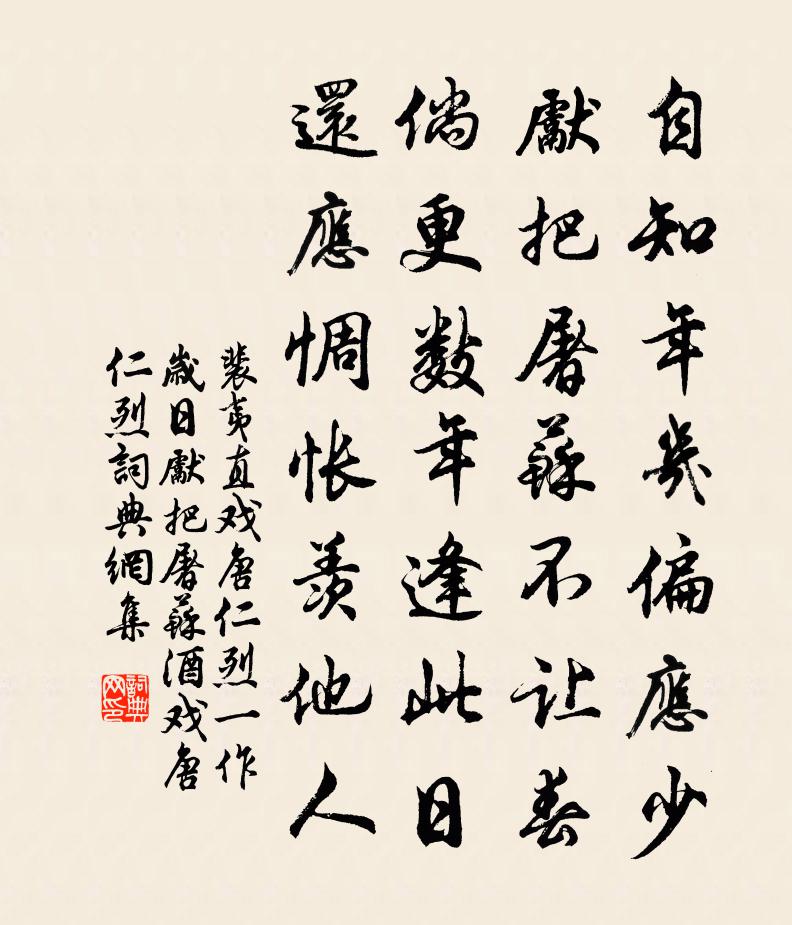 自知年幾偏應少
獻把屠蘇不让春
倘更数年逢此日
還應惆怅羨他人
裴夷直戏唐仁烈一作
歲日獻把屠蘇酒戏唐
仁烈詞典網集
詞典
网印